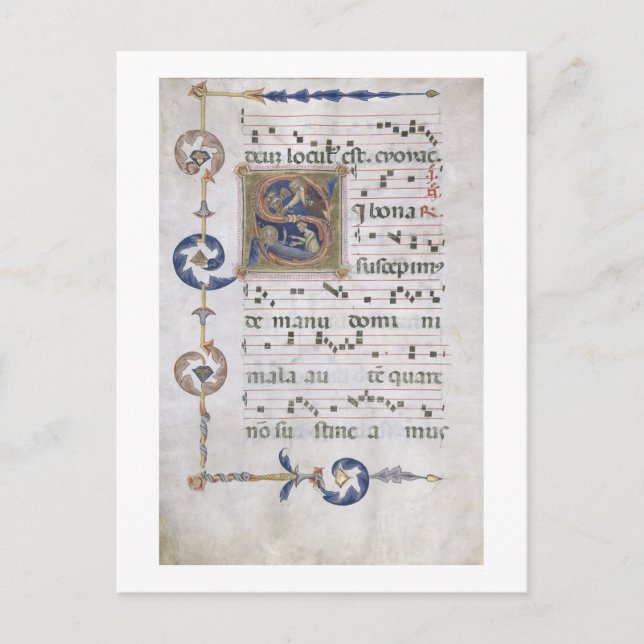 deuz locut᷒ est. evovae.
S I bona R.
suscepim⁹
de manu domi ni
mala au tē quare
nō su stine a mus